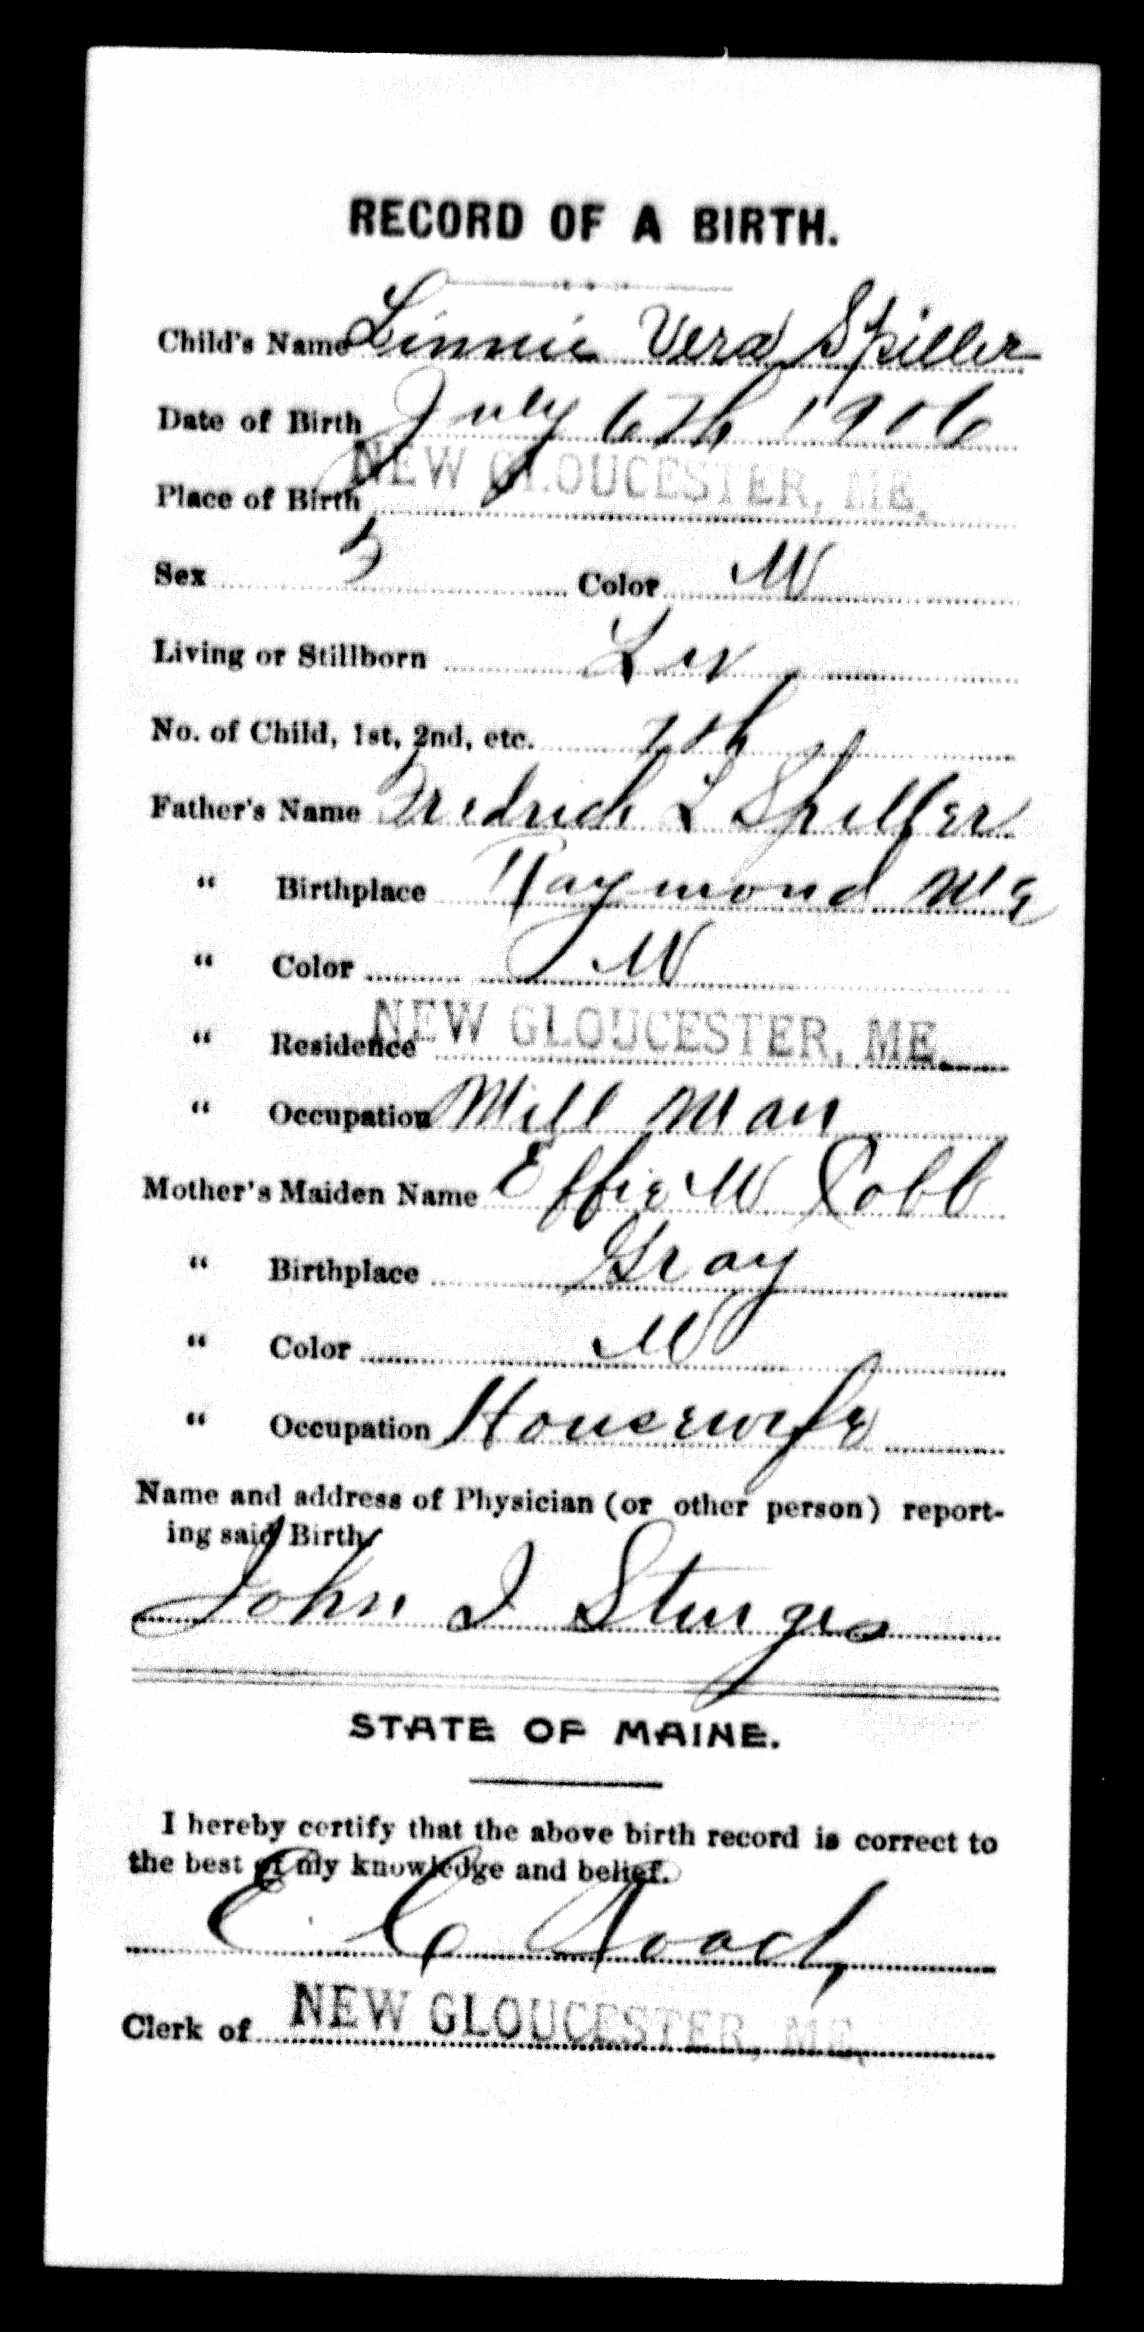 RECORD OF A BIRTH.
Child's Name Linnie Vera Spiller
Date of Birth July 6th 1906
Place of Birth NEW GLOUCESTER, ME.
Sex F Color W
Living or Stillborn Liv
No. of Child, 1st, 2nd, etc. 7th
Father's Name Fredrick L Spiller
" Birthplace Raymond Me
" Color W
" Residence NEW GLOUCESTER, ME.
" Occupation Mill Man
Mother's Maiden Name Effie W Cobb
" Birthplace Gray
" Color W
" Occupation Housewife
Name and address of Physician (or other person) report-
ing said Birth
John I Sturgis
STATE OF MAINE.
I hereby certify that the above birth record is correct to
the best of my knowledge and belief.
E. C.
Clerk of NEW GLOUCESTER, ME.